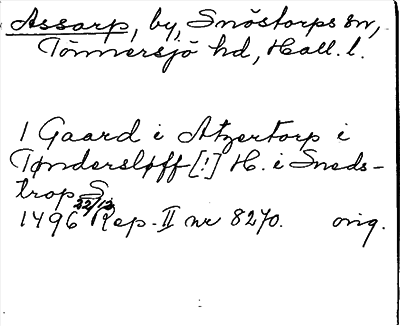 Assarp, by, Snöstorps sn,
Tönnersjö hd, Hall. l.
1 Gaard i Atzertorp i
Tøndersløff [!] H. i Sneds-
trop S
1496 22/12 Rep. II nr 8270. orig.